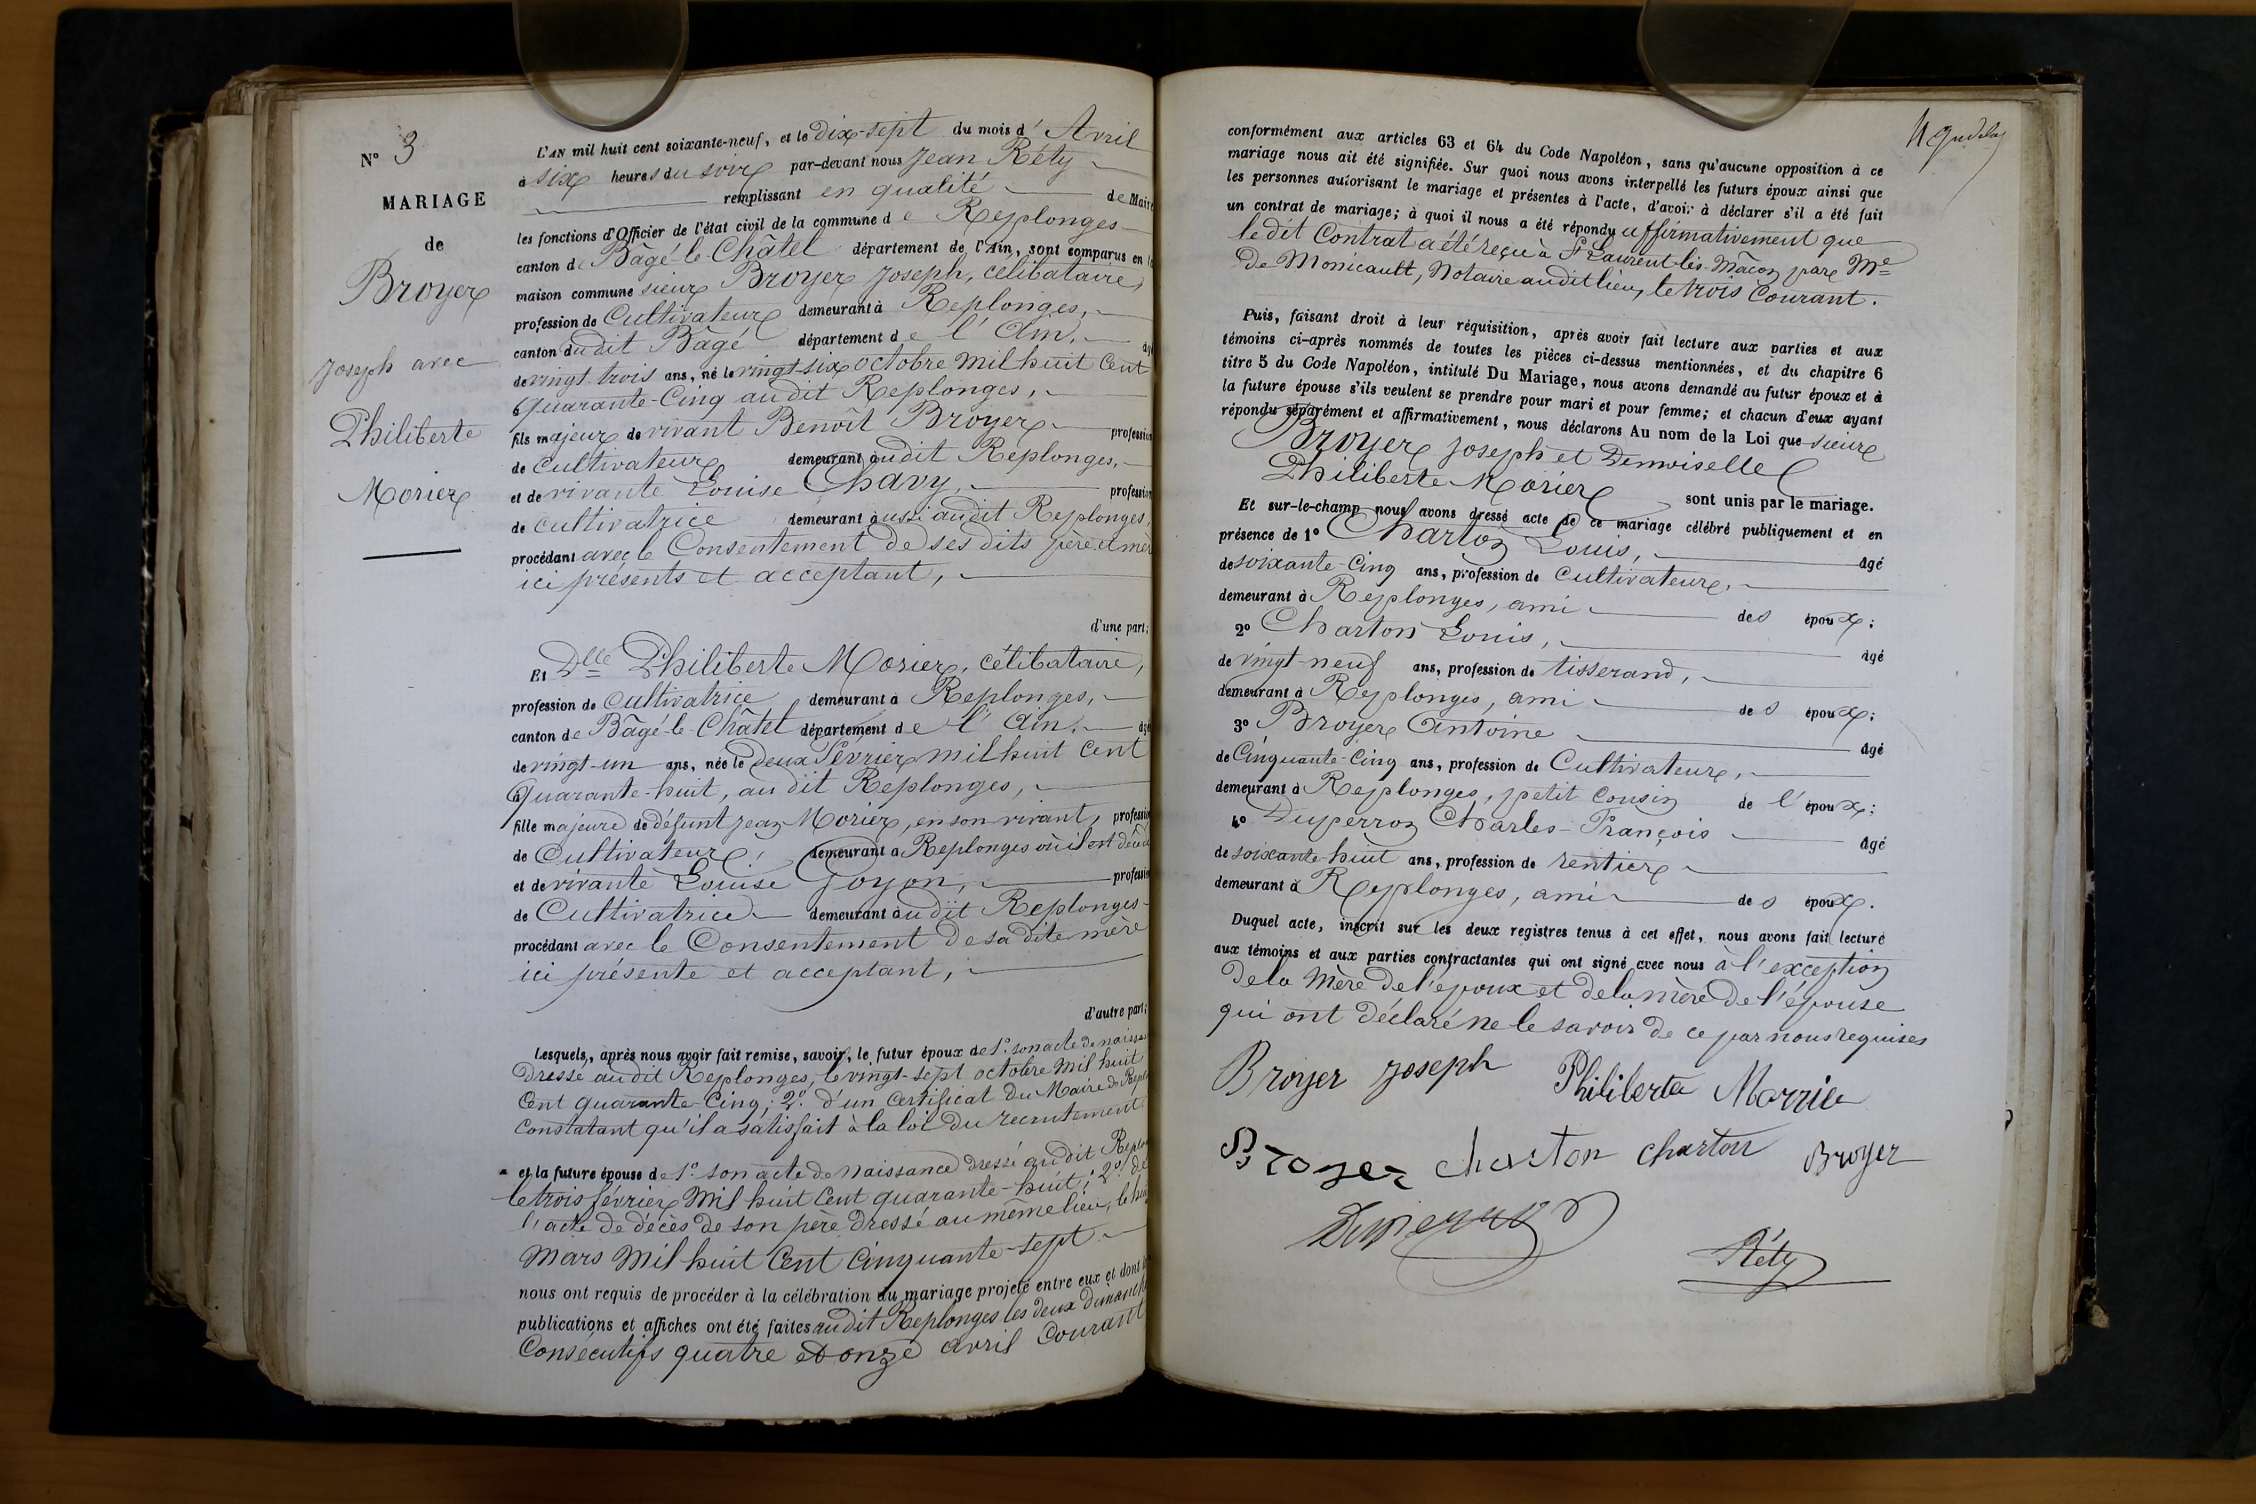 N° 3
MARIAGE
de
Broyer
Joseph avec
Philiberte
Morier
L'AN mil huit cent soixante-neuf, et le Dix-sept du mois d' Avril
à six heures du soir par-devant nous Jean Réty
remplissant en qualité de Maire
les fonctions d'Officier de l'état civil de la commune de Replonges
canton de Bâgé-le-Châtel département de l'Ain, sont comparus en la
maison commune sieur Broyer Joseph, célibataire,
profession de Cultivateur demeurant à Replonges,
canton dudit Bâgé département de l'Ain, âgé
de vingt-trois ans, né le vingt-six octobre mil huit Cent
Quarante-Cinq audit Replonges,
fils majeur de vivant Benoît Broyer profession
de Cultivateur demeurant audit Replonges,
et de vivante Louise Chavy, profession
de cultivatrice demeurant aussi audit Replonges,
procédant avec le Consentement de ses dits père et mère
ici présents et acceptant,
d'une part;
Et Dlle Philiberte Morier, célibataire,
profession de Cultivatrice demeurant à Replonges,
canton de Bâgé-le-Châtel département de l'Ain, âgé
de vingt-un ans, née le deux Février mil huit Cent
Quarante-huit, audit Replonges,
fille majeure de défunt Jean Morier, en son vivant, profession
de Cultivateur, demeurant à Replonges où il est décédé
et de vivante Louise Goyon, profession
de Cultivatrice demeurant audit Replonges
procédant avec le Consentement de sa dite mère
ici présente et acceptant,
d'autre part;
Lesquels, après nous avoir fait remise, savoir, le futur époux de 1° son acte de naiss
Dressé audit Replonges, le vingt-sept octobre mil huit
Cent quarante-Cinq; 2° d'un Certificat du Maire de Repl
Constatant qu'il a satisfait à la loi du recrutement
et la future épouse de 1° son acte de naissance dressé audit Replon
le trois février mil huit Cent quarante-huit; 2° de
l'acte de décès de son père dressé au même lieu, le hu
Mars mil huit Cent Cinquante-sept
nous ont requis de procéder à la célébration du mariage projeté entre eux et dont
publications et affiches ont été faites audit Replonges les deux dimanches
Consécutifs quatre et onze avril Courant
conformément aux articles 63 et 64 du Code Napoléon, sans qu'aucune opposition à ce
mariage nous ait été signifiée. Sur quoi nous avons interpellé les futurs époux ainsi que
les personnes autorisant le mariage et présentes à l'acte, d'avoir à déclarer s'il a été fait
un contrat de mariage; à quoi il nous a été répondu affirmativement que
le dit Contrat a été reçu à St Laurent-lès-Mâcon par Me
De Monicault, Notaire audit lieu, le trois Courant.
Puis, faisant droit à leur réquisition, après avoir fait lecture aux parties et aux
témoins ci-après nommés de toutes les pièces ci-dessus mentionnées, et du chapitre 6
titre 5 du Code Napoléon, intitulé Du Mariage, nous avons demandé au futur époux et à
la future épouse s'ils veulent se prendre pour mari et pour femme; et chacun d'eux ayant
répondu séparément et affirmativement, nous déclarons Au nom de la Loi que sieur
Broyer Joseph et Demoiselle
Philiberte Morier sont unis par le mariage.
Et sur-le-champ nous avons dressé acte de ce mariage célébré publiquement et en
présence de 1° Charton Louis, âgé
de soixante-Cinq ans, profession de Cultivateur,
demeurant à Replonges, ami des époux;
2° Charton Louis, âgé
de vingt-neuf ans, profession de tisserand,
demeurant à Replonges, ami des époux;
3° Broyer Antoine âgé
de Cinquante-Cinq ans, profession de Cultivateur,
demeurant à Replonges, petit Cousin de l'époux;
4° Duperron Charles-François âgé
de soixante-huit ans, profession de rentier
demeurant à Replonges, ami des époux.
Duquel acte, inscrit sur les deux registres tenus à cet effet, nous avons fait lecture
aux témoins et aux parties contractantes qui ont signé avec nous à l'exception
De la Mère de l'époux et de la mère de l'épouse
qui ont déclaré ne le savoir de ce par nous requises
Broyer Joseph Philiberte Morrier
Broyer charton charton Broyer
Duperron
Réty